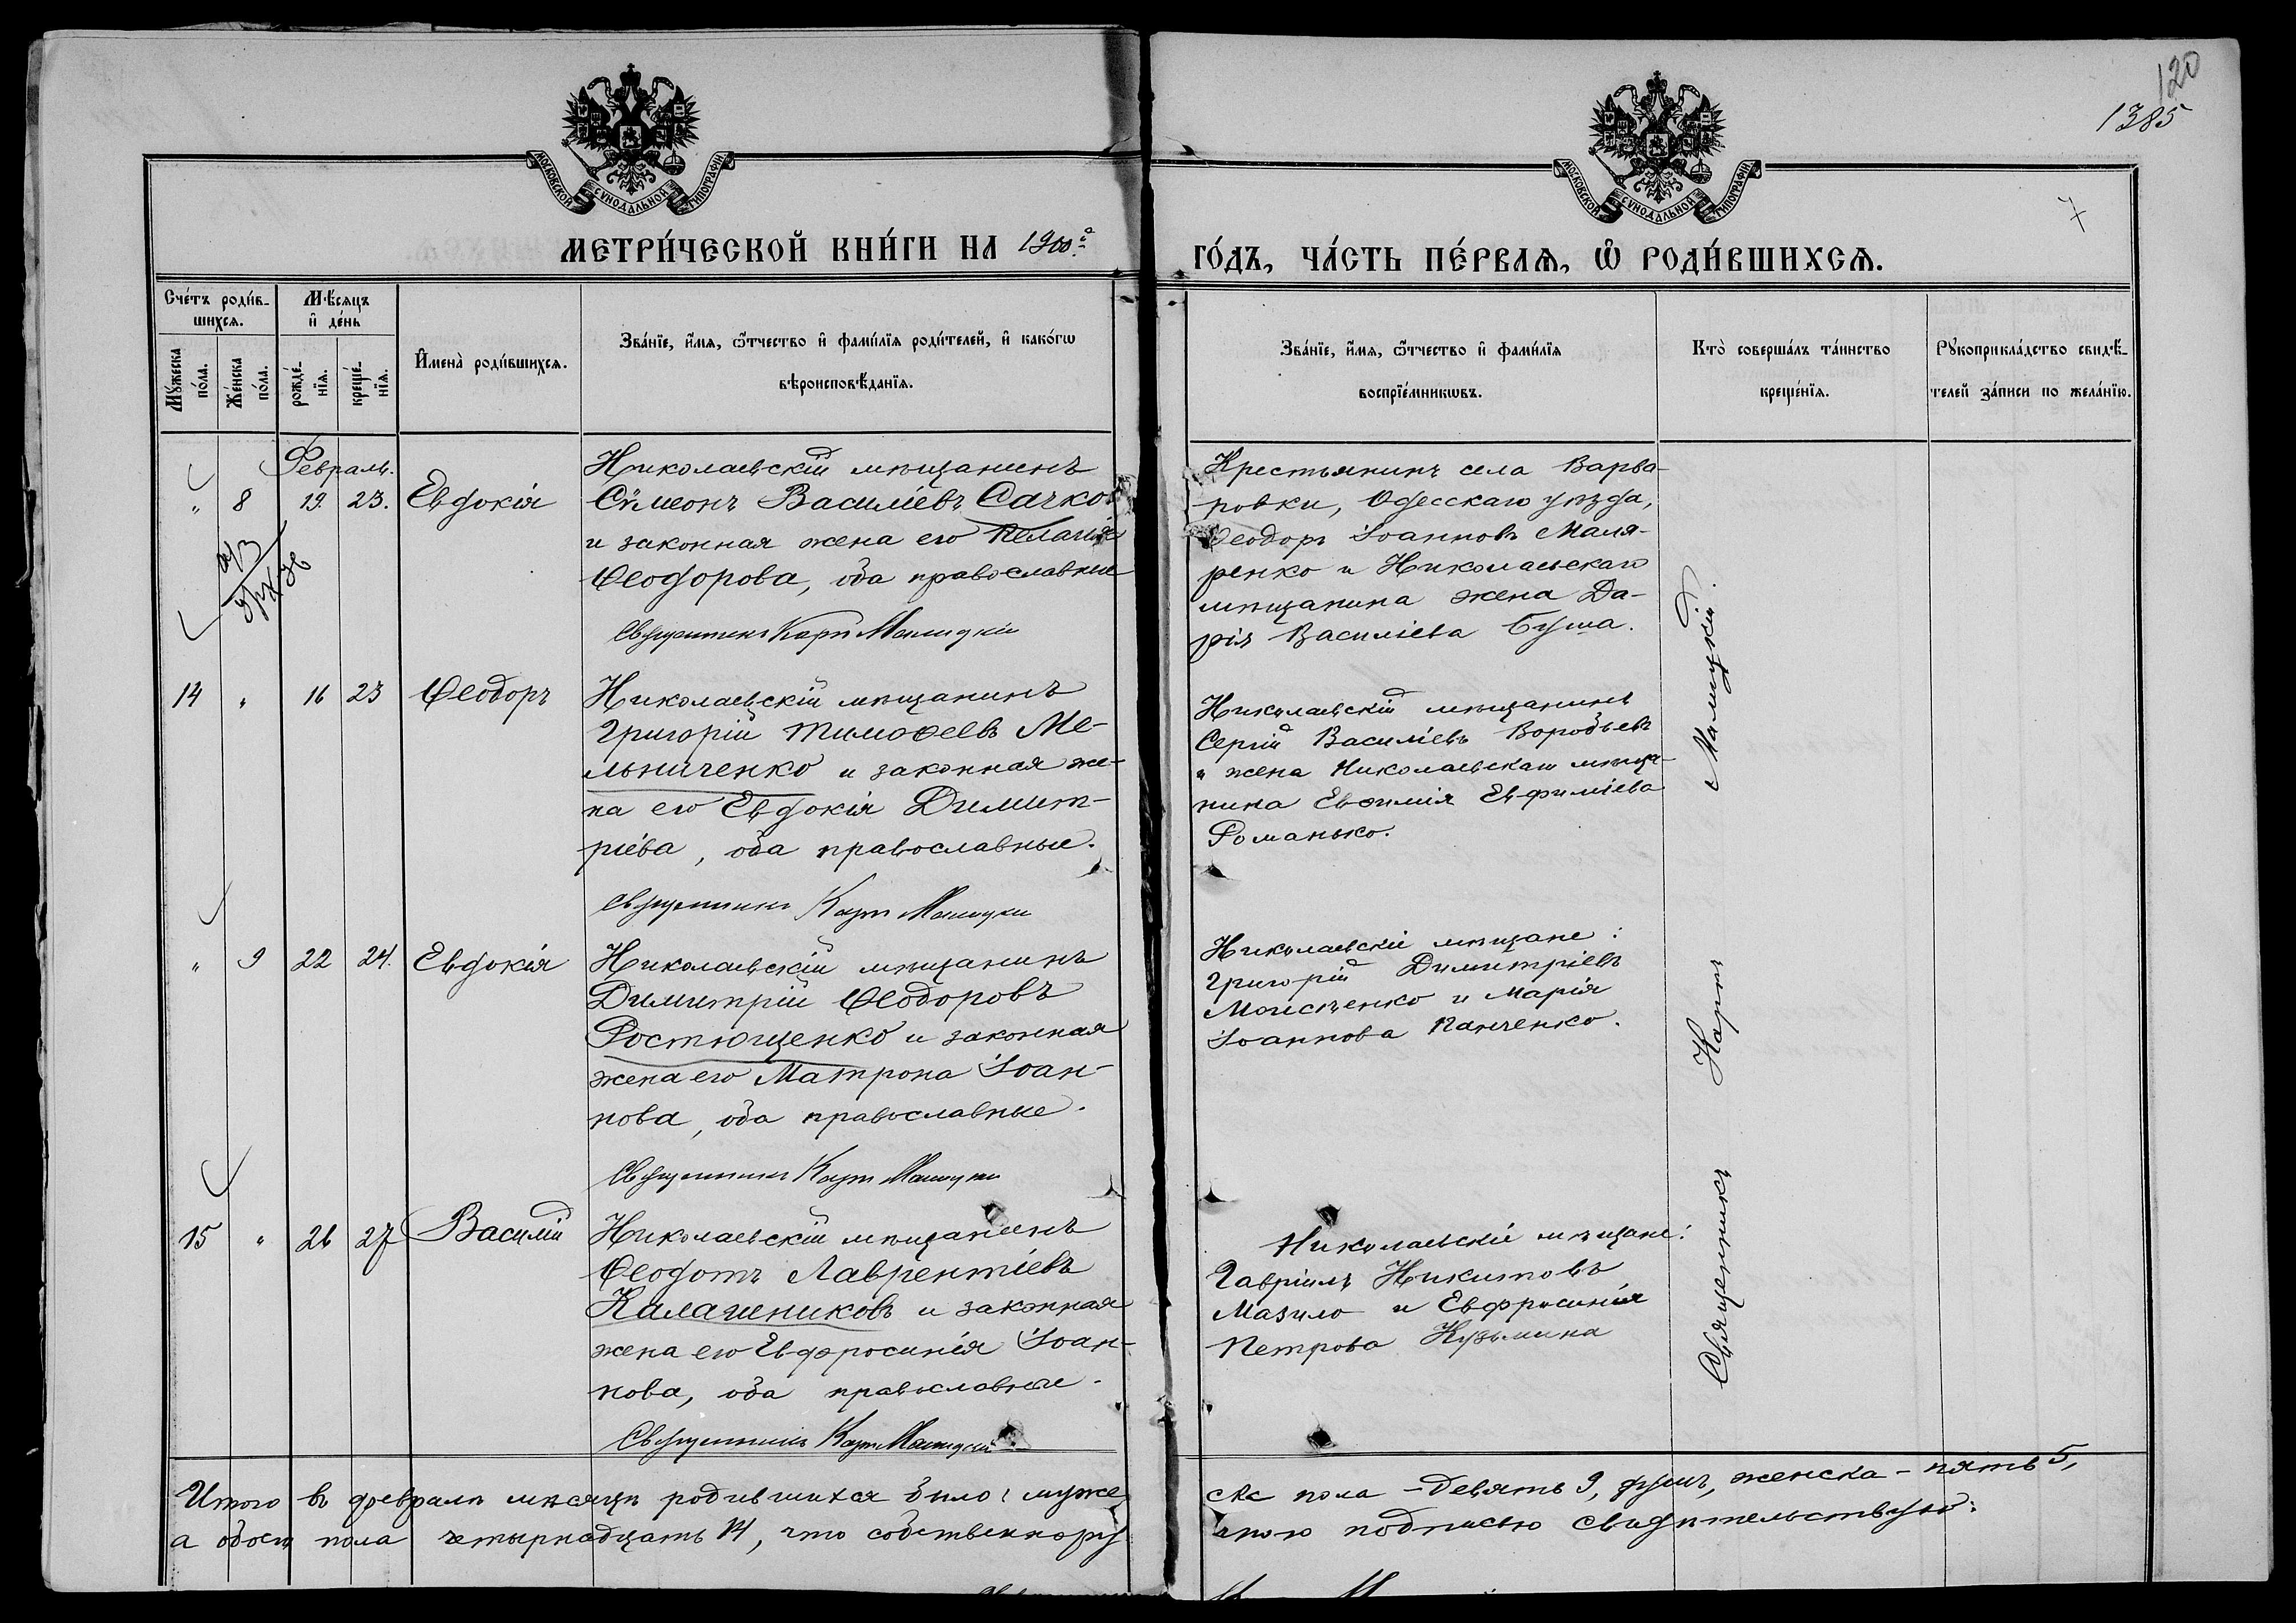 120
1385
7
МОСКОВСКОЙ СѴНОДАЛЬНОЙ ТИПОГРАФІИ
МОСКОВСКОЙ СѴНОДАЛЬНОЙ ТИПОГРАФІИ
МЕТРИ́ЧЕСКОЙ КНИ́ГИ НА 1900й
ГО́ДЪ, ЧА́СТЬ ПЕ́РВАѦ, Ѡ҆ РОДИ́ВШИХСѦ.
Сче́тъ роди́в-
шихсѧ.
Мꙋ́жеска
по́ла.
Же́нска
по́ла.
Мѣ́сѧцъ
и҆ де́нь
рожде́-
нїѧ.
креще́-
нїѧ.
И҆мена̀ роди́вшихсѧ.
Зва́нїе, и҆́мѧ, ѻ҆́тчество и҆ фами́лїѧ роди́телей, и҆ како́гѡ
вѣроисповѣ́данїѧ.
Зва́нїе, и҆́мѧ, ѻ҆́тчество и҆ фами́лїѧ
воспрїе́мникѡвъ.
Кто̀ соверша́лъ та́инство
креще́нїѧ.
Рꙋкоприкла́дство свидѣ́-
телей за́писи по жела́нїю.
Февраль.
" 8 19. 23. Евдокія
Николаевскій мѣщанинъ
Сѵмеонъ Василіевъ Сачков
и законная жена его Пелагія
Ѳеодорова, оба православные
Священникъ Карпъ Малицкій
Крестьянинъ села Варва-
ровки, Одесскаго уѣзда,
Ѳеодоръ Іоанновъ Маля-
ренко и Николаевскаго
мѣщанина жена Да-
рія Василіева Буша.
14 " 16 23 Ѳеодоръ
Николаевскій мѣщанинъ
Григорій Тимоѳеевъ Ме-
льниченко и законная же-
на его Евдокія Димит-
ріева, оба православные.
Священникъ Карпъ Малицкій
Николаевскій мѣщанинъ
Сергій Василіевъ Воробьевъ
и жена Николаевскаго мѣща-
нина Евѳимія Евфиміева
Романько.
" 9 22 24. Евдокія
Николаевскій мѣщанинъ
Димитрій Ѳеодоровъ
Ростющенко и законная
жена его Матрона Іоан-
нова, оба православные.
Священникъ Карпъ Малицкій
Николаевскіе мѣщане:
Григорій Димитріевъ
Моисѣенко и Марія
Іоаннова Панченко.
15 " 26 27 Василій
Николаевскій мѣщанинъ
Ѳеодотъ Лаврентіевъ
Калашниковъ и законная
жена его Евфросинія Іоан-
нова, оба православные.
Священникъ Карпъ Малицкій.
Николаевскіе мѣщане:
Гавріилъ Никитовъ
Мазило и Евфросинія
Петрова Кузьмина
Священникъ Карпъ Малицкій.
Итого въ февралѣ мѣсяцѣ родившихся было: муже
ска пола – девять 9, душъ, женска – пять 5,
а обоего пола четырнадцать 14, что собственнору
чною подписью свидѣтельствую: